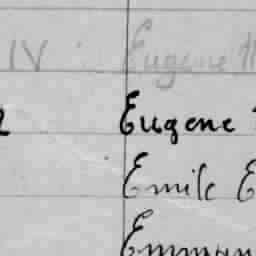 IV Eugene
Eugene
Emile E
Emman